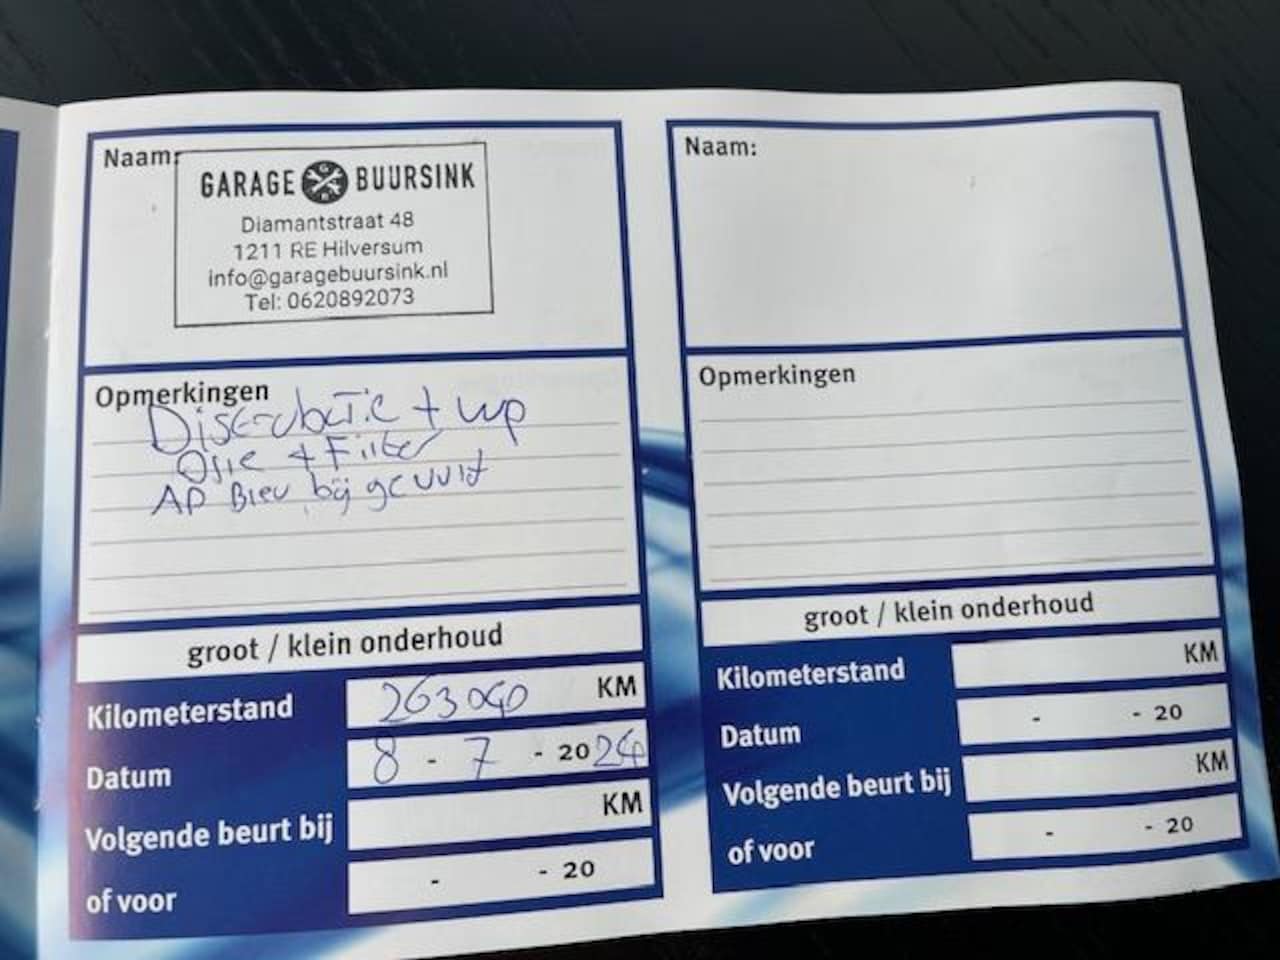 Naam:
GARAGE BUURSINK
Diamantstraat 48
1211 RE Hilversum
info@garagebuursink.nl
Tel: 0620892073
Opmerkingen
Distributie + wp
Olie + Filter
AD Bleu bij gevuld
groot / klein onderhoud
Kilometerstand 263040 KM
Datum 8 - 7 - 2024
Volgende beurt bij KM
of voor - - 20
Naam:
Opmerkingen
groot / klein onderhoud
Kilometerstand KM
Datum - - 20
Volgende beurt bij KM
of voor - - 20